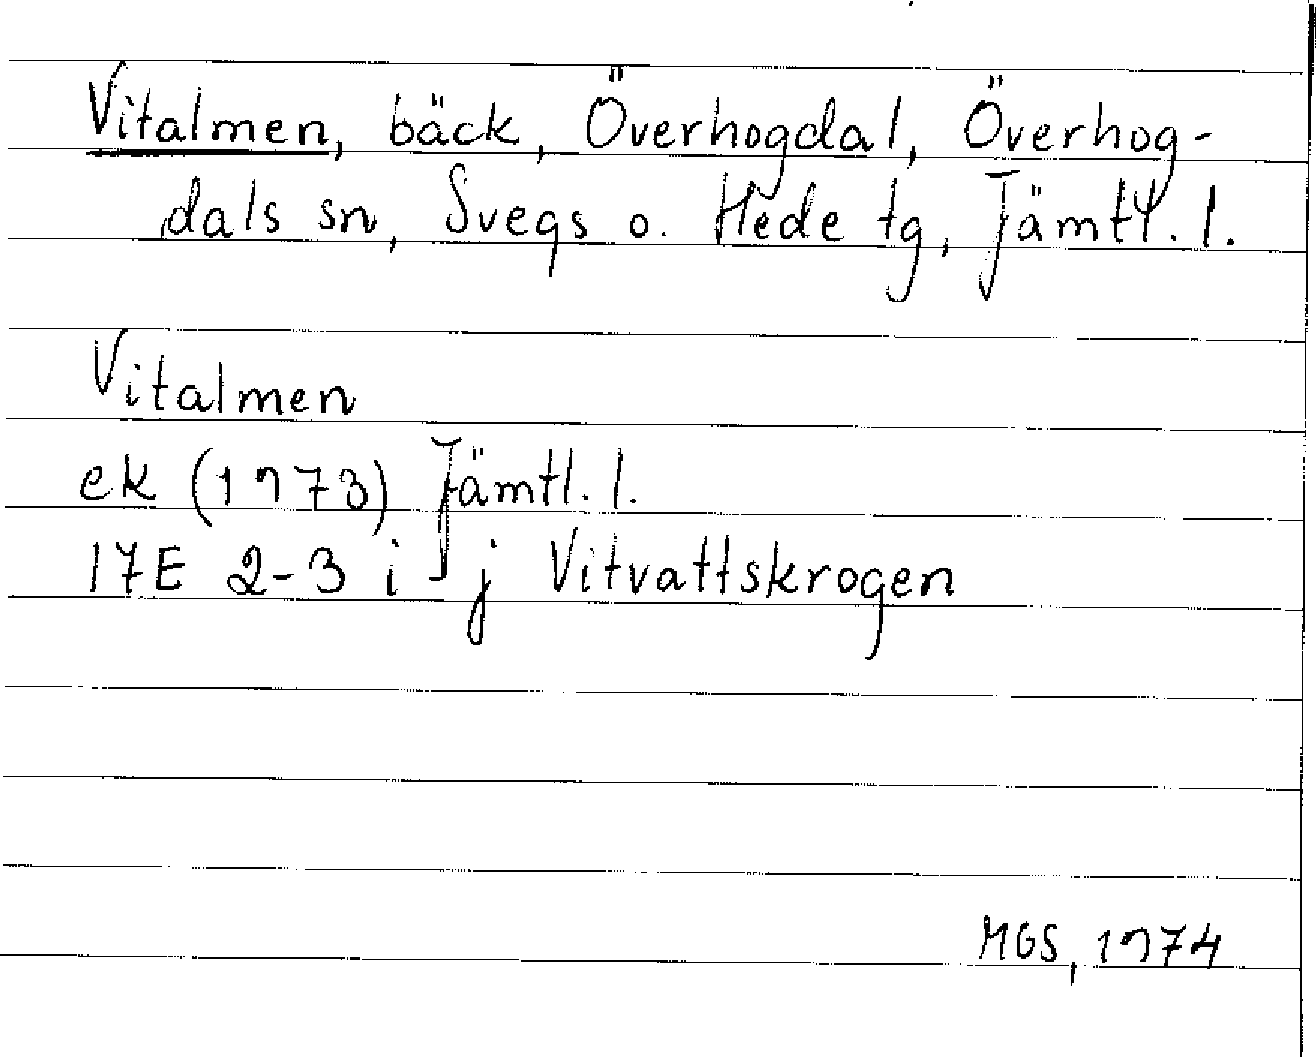 Vitalmen, bäck, Överhogdal, Överhog-
dals sn, Svegs o. Hede tg, Jämtl. l.
Vitalmen
ek (1973) Jämtl. l.
17E 2-3 i j Vitvattskrogen
MGS, 1974